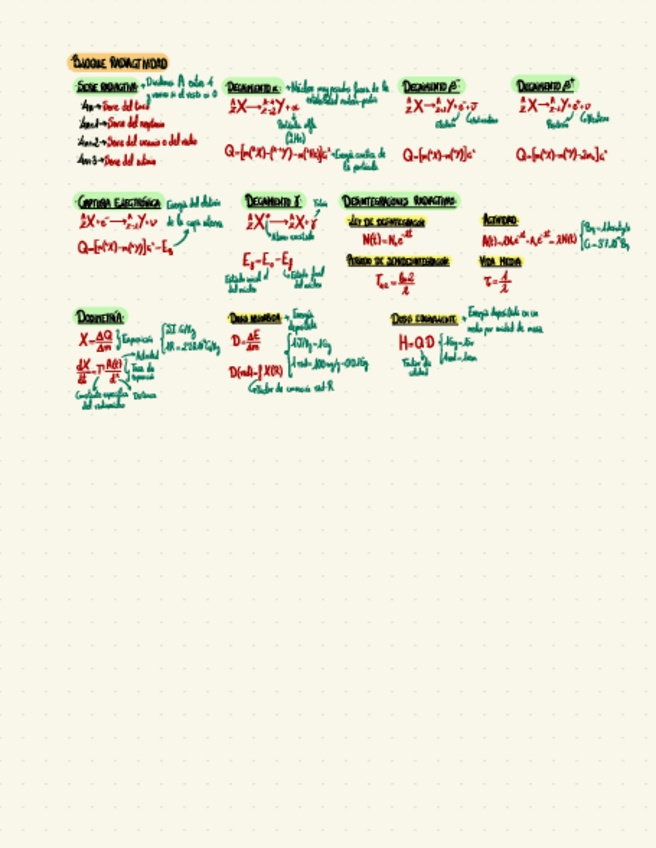 BLOQUE RADIACTIVIDAD
SERIE RADIACTIVA → Dividimos A entre 4 y vemos si el resto es 0
4n → Serie del torio
4n+1 → Serie del neptunio
4n+2 → Serie del uranio o del radio
4n+3 → Serie del actinio
DECAIMIENTO α → Núcleos muy pesados fuera de la estabilidad
X → Y + α
Partícula alfa
Q = [m(X) - m(Y) - m(He)]c² → Energía cinética de la partícula
DECAIMIENTO β⁻
X → Y + e⁻ + ν
electrón
Q = [m(X) - m(Y)]c²
DECAIMIENTO β⁺
X → Y + e⁺ + ν
Positrón
Neutrino
Q = [m(X) - m(Y) - 2mₑ]c²
CAPTURA ELECTRÓNICA
Energía del electrón de la capa interna
X + e⁻ → Y + ν
Q = [m(X) - m(Y)]c² - E
DECAIMIENTO γ
Fotón
X* → X + γ
Átomo excitado
Estado inicial del núcleo
Estado final del núcleo
DESINTEGRACIONES RADIACTIVAS
LEY DE DESINTEGRACIÓN
N(t) = N₀e^-λt
PERIODO DE SEMIDESINTEGRACIÓN
T = ln2/λ
ACTIVIDAD
VIDA MEDIA
τ = 1/λ
DOSIMETRÍA
X = ΔQ/Δm } Exposición
dX/dt = Γ A(t)/d²
Actividad
Tasa de exposición
Constante específica del radionúclido
Distancia
DOSIS ABSORBIDA → Energía depositada
D = ΔE/Δm
1 J/kg = 1 Gy
D(rad) = f X(R)
Factor de conversión rad-R
DOSIS EQUIVALENTE → Energía depositada en un medio por unidad de masa
H = QD
Factor de calidad